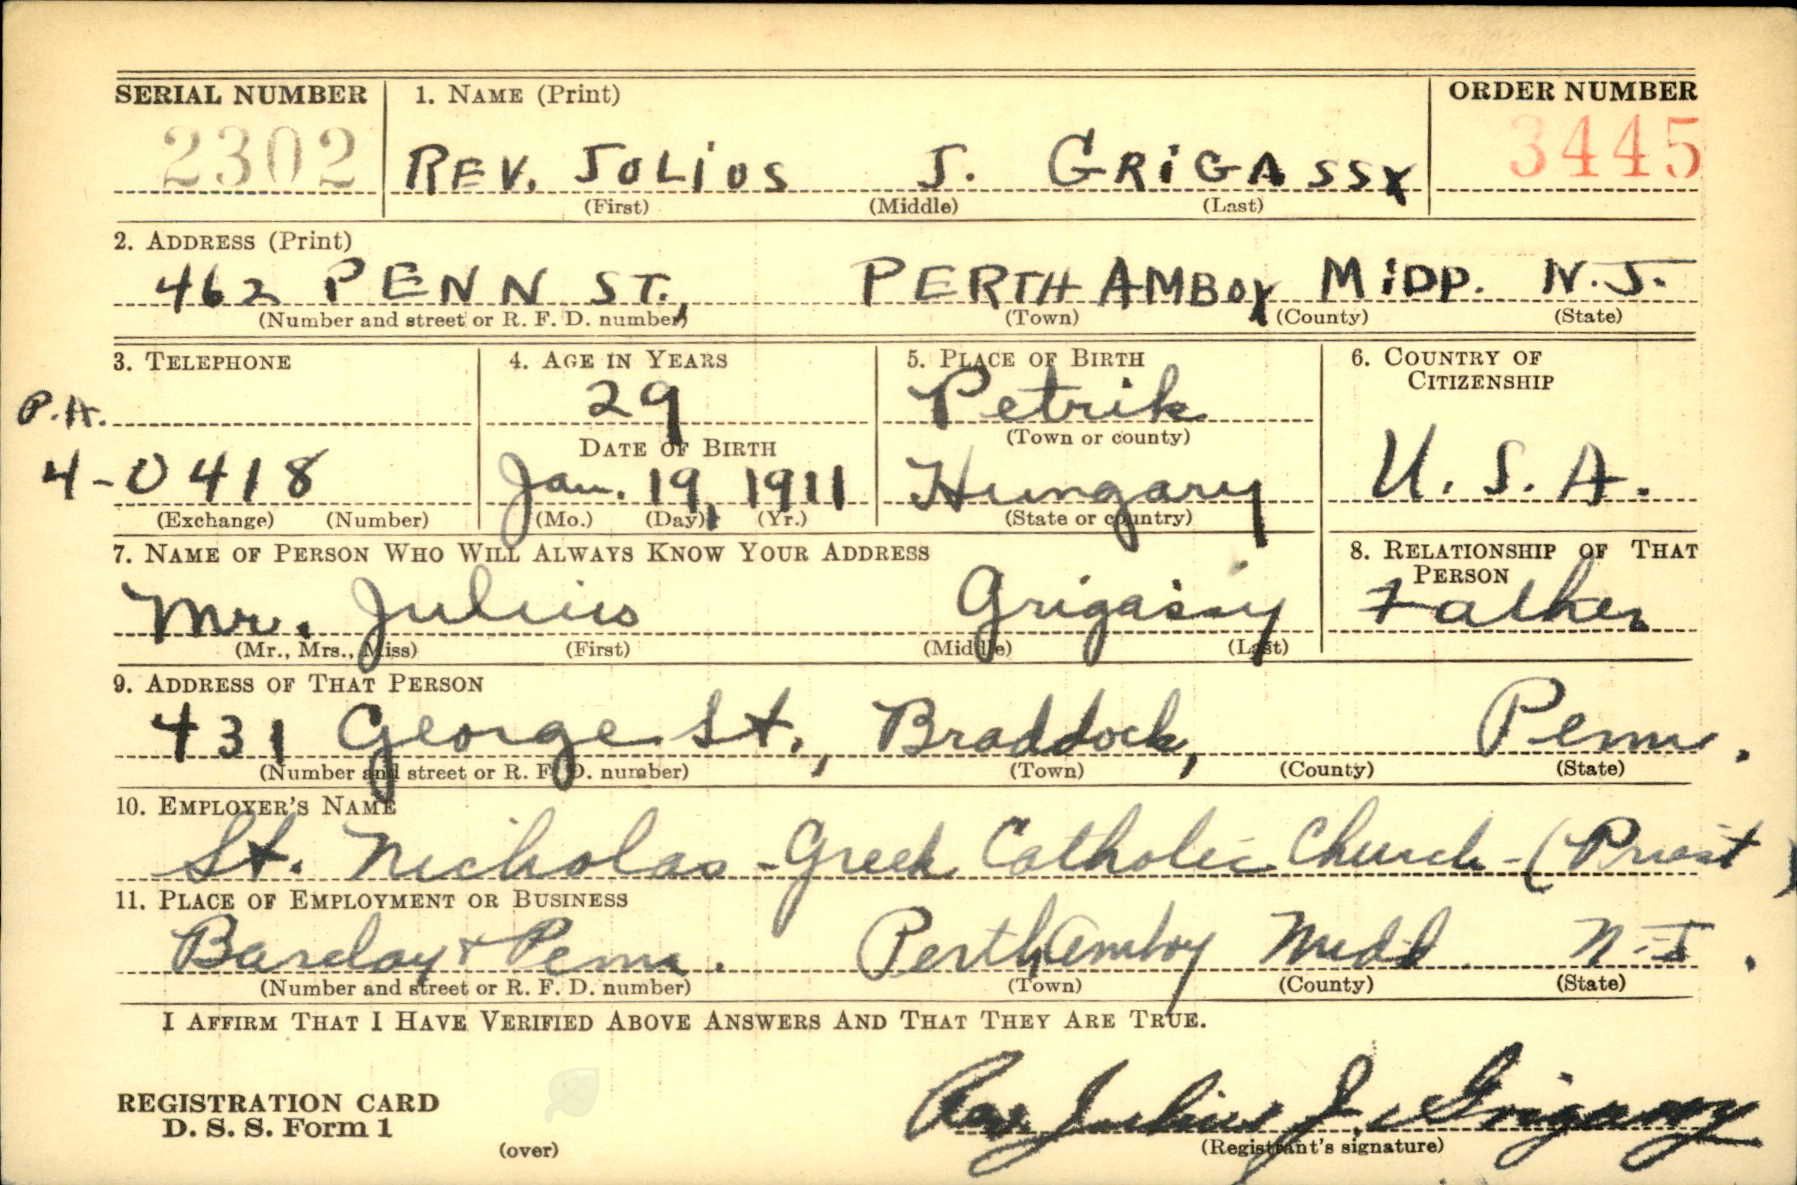 SERIAL NUMBER 1. NAME (Print) ORDER NUMBER
2302 REV. JULIUS J. GRIGASSY 3445
(First) (Middle) (Last)
2. ADDRESS (Print)
462 PENN ST., PERTH AMBOY MIDD. N.J.
(Number and street or R. F. D. number) (Town) (County) (State)
3. TELEPHONE 4. AGE IN YEARS 5. PLACE OF BIRTH 6. COUNTRY OF
CITIZENSHIP
P.A. 29 Petrik
DATE OF BIRTH (Town or county)
4-0418 Jan. 19, 1911 Hungary U.S.A.
(Exchange) (Number) (Mo.) (Day) (Yr.) (State or country)
7. NAME OF PERSON WHO WILL ALWAYS KNOW YOUR ADDRESS 8. RELATIONSHIP OF THAT
PERSON
Mr. Julius Grigassy Father
(Mr., Mrs., Miss) (First) (Middle) (Last)
9. ADDRESS OF THAT PERSON
431 George St., Braddock, Penna.
(Number and street or R. F. D. number) (Town) (County) (State)
10. EMPLOYER'S NAME
St. Nicholas - Greek Catholic Church - (Priest)
11. PLACE OF EMPLOYMENT OR BUSINESS
Barclay + Penn. Perth Amboy Midd N.J.
(Number and street or R. F. D. number) (Town) (County) (State)
I AFFIRM THAT I HAVE VERIFIED ABOVE ANSWERS AND THAT THEY ARE TRUE.
REGISTRATION CARD
D. S. S. Form 1
Rev. Julius J. Grigassy
(over) (Registrant's signature)